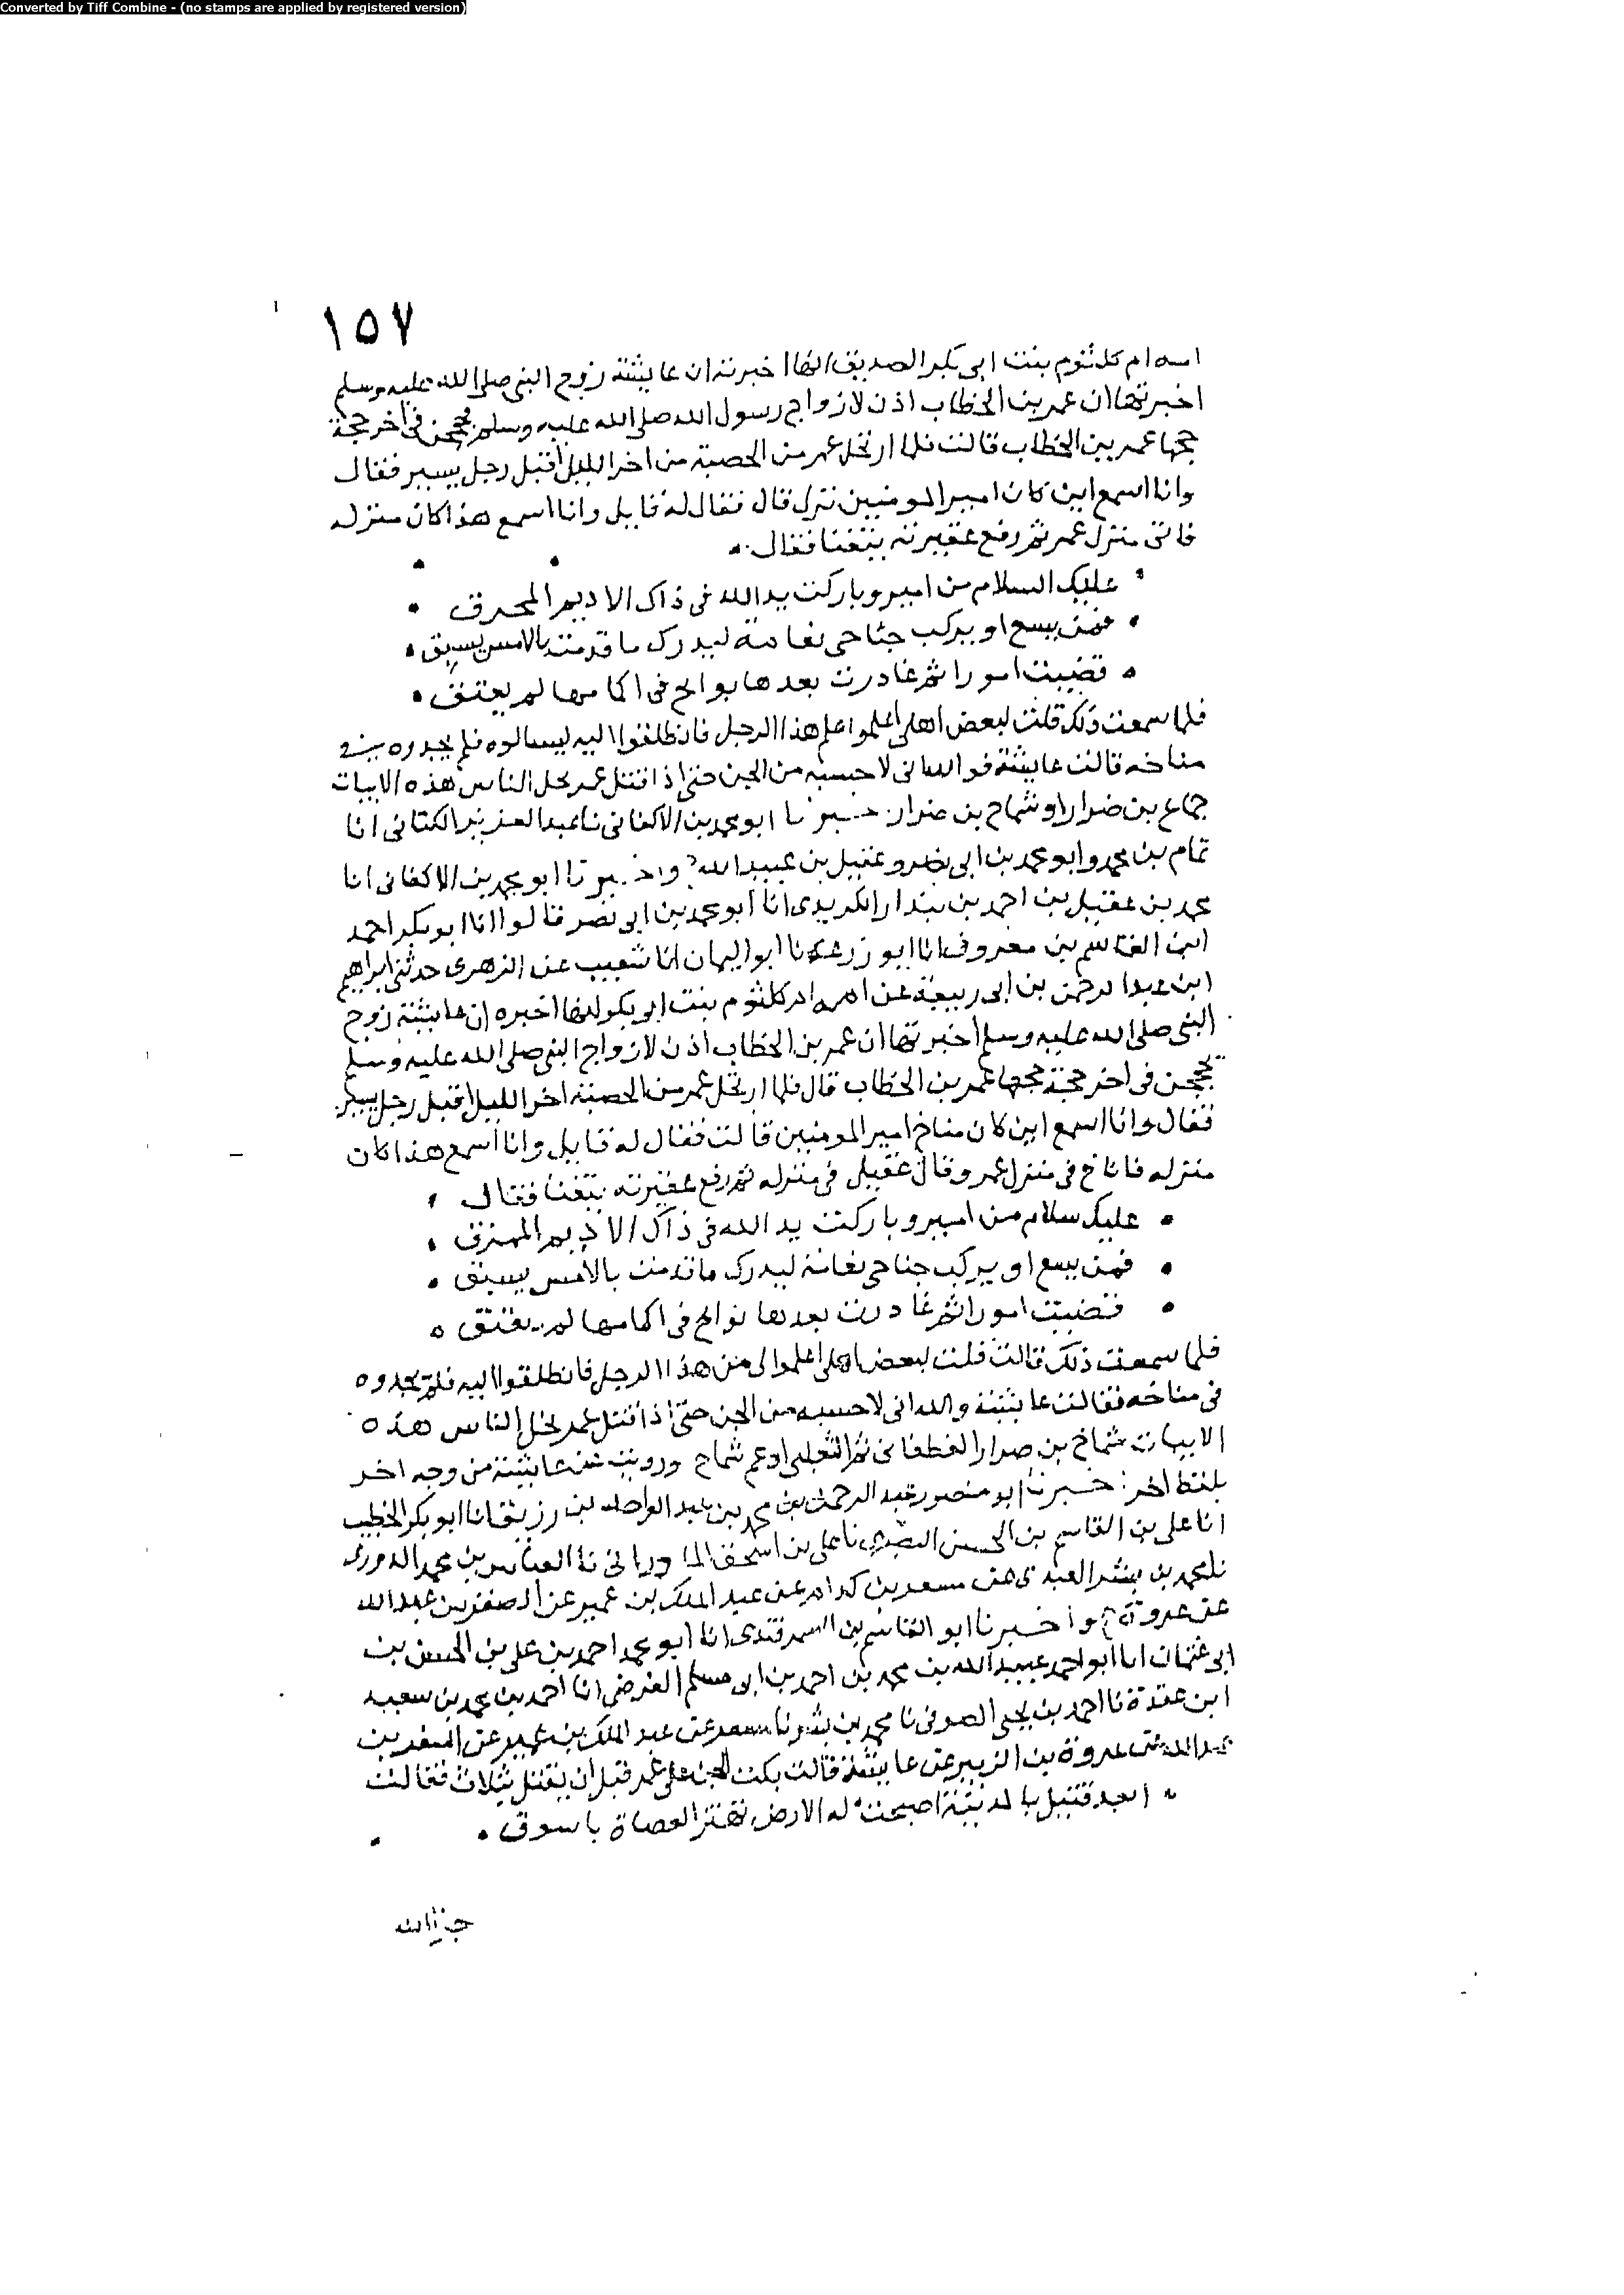 Converted by Tiff Combine - (no stamps are applied by registered version)
١٥٧
امه ام كلثوم بنت ابى بكر الصديق انها اخبرته ان عايشة زوج النبى صلى الله عليه وسلم
اخبرتها ان عمر بن الخطاب اذن لازواج رسول الله صلى الله عليه وسلم يحججن فى اخر حجة
حجها عمر بن الخطاب قالت فلما ارتحل عمر من الحصبة من اخر الليل اقبل رجل يسير فقال
وانا اسمع اين كان امير المومنين نزل قال فقال له قايل وانا اسمع هذا كان منزله
فاتى منزل عمر ثم رفع عقيرته يتغنا فقال
عليك السلام من امير وباركت يد الله فى ذاك الاديم المحرق
فمن يسع او يركب جناحى نعامة ليدرك ما قدمت بالامس يسبق
قضيت امورا ثم غادرت بعدها بوائح فى اكمامها لم يعتق
فلما سمعت ذلك قلت لبعض اهلى اعلموا علم هذا الرجل فانطلقوا اليه ليسالوه فلم يجدوه فى
مناخه قالت عايشة فوالله انى لاحسبه من الجن حتى اذا قتل عمر نحل الناس هذه الابيات
جماع بن ضرار او شماخ بن ضرار خبرنا ابو محمد بن الاكفانى نا عبد العزيز الكتانى انا
تمام بن محمد وابو محمد بن ابى نصر وعقيل بن عبيد الله واخبرنا ابو محمد بن الاكفانى انا
محمد بن عقيل بن احمد بن بندار الكريدى انا ابو محمد بن ابى نصر قالوا انا ابو بكر احمد
ابن القاسم بن معروف انا ابو زرعة نا ابو اليمان انا شعيب عن الزهرى حدثنى ابراهيم
ابن عبد الرحمن بن ابى ربيعة عن امه ام كلثوم بنت ابى بكر انها اخبره ان عايشة زوج
النبى صلى الله عليه وسلم اخبرتها ان عمر بن الخطاب اذن لازواج النبى صلى الله عليه وسلم
يحججن فى اخر حجة حجها عمر بن الخطاب قال فلما ارتحل عمر من الحصبة اخر الليل اقبل رجل يسير
فقال وانا اسمع اين كان مناخ امير المومنين قالت فقال له قايل وانا اسمع هذا كان
منزله فاناخ فى منزل عمر وقال عقيل فى منزله ثم رفع عقيرته يتغنا فقال
عليك سلام من امير وباركت يد الله فى ذاك الاديم الممزق
فمن يسع او يركب جناحى نعامة ليدرك ما قدمت بالامس يسبق
قضيت امورا ثم غادرت بعدها بوائح فى اكمامها لم تفتق
فلما سمعت ذلك قالت قلت لبعض اهلى اعلموا لى من هذا الرجل فانطلقوا اليه فلم يجدوه
فى مناخه فقالت عايشة والله انى لاحسبه من الجن حتى اذا قتل عمر نحل الناس هذه
الابيات شماخ بن ضرار الغطفانى ثم الثعلبى او عم شماخ ورويت عن عايشة من وجه اخر
بلفظ اخر خبرنا ابو منصور عبد الرحمن بن محمد بن عبد الواحد بن رزيق انا ابو بكر الخطيب
انا على بن القاسم بن الحسن البصرى نا على بن اسحق المادرانى نا العباس بن محمد الدورى
نا محمد بن بشر العبدى عن مسعر بن كدام عن عبد الملك بن عمير عن الصقر بن عبد الله
عن عروة ح واخبرنا ابو القاسم بن السمرقندى انا ابو محمد احمد بن على بن الحسن بن
ابى عثمان انا ابو احمد عبيد الله بن محمد بن احمد بن ابى مسلم الفرضى انا احمد بن محمد بن سعيد
ابن عقدة نا احمد بن يحيى الصوفى نا محمد بن بشر نا مسعر عن عبد الملك بن عمير عن الصقر بن
عبد الله عن عروة بن الزبير عن عايشة قالت بكت الجن على عمر قبل ان يقتل بثلاث فقالت
ابعد قتيل بالمدينة اصبحت له الارض تهتز العصاة باسوق
جزا الله